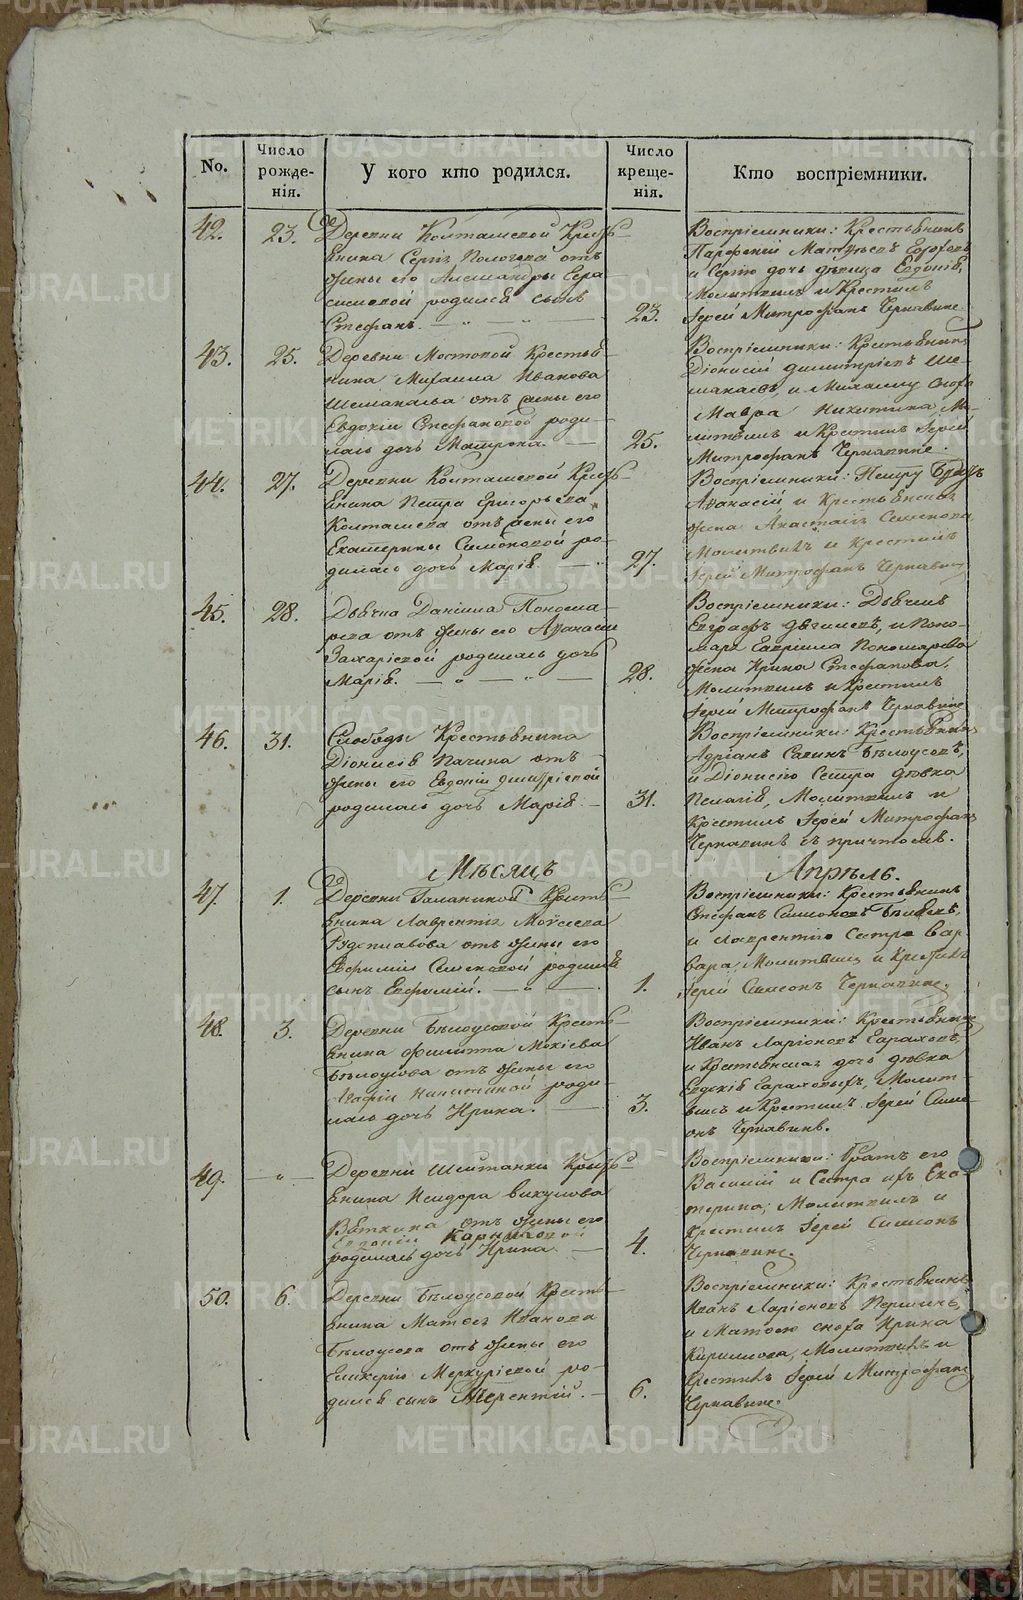 No.
Число рожде-нія.
У кого кто родился.
Число креще-нія.
Кто воспріемники.
42.
23.
Деревни Колташевой Кресть-
янина Сергія отъ
жены его Александры Гера-
симовой родился сынъ
Стефанъ.
23.
Воспріемники: Крестьянинъ
Парфеній Матвѣевъ
и Сергію дочь дѣвица Евдокія,
Молитвилъ и Крестилъ
Іерей Митрофанъ Чернавинъ.
43.
25.
Деревни Мостовой Крестья-
нина Михаила Иванова
Шемакаева отъ жены его
Евдокіи Стефановой роди-
лась дочь Матрона.
25.
Воспріемники: Крестьянинъ
Діонисій Димитріевъ Ше-
макаевъ, и Михаилу сноха
Мавра Никитина Мо-
литвилъ и Крестилъ Іерей
Митрофанъ Чернавинъ.
44.
27.
Деревни Колташевой Кресть-
янина Петра Григорьева
Колташева отъ жены его
Екатерины Симеоновой ро-
дилась дочь Марія.
27.
Воспріемники: Петру Братъ
Афанасій и Крестьянская
жена Анастасія Семенова
Молитвилъ и Крестилъ
Іерей Митрофанъ Чернавинъ
45.
28.
Дьячка Даніила Понома-
рева отъ жены его Афанасіи
Захаріевой родилась дочь
Марія.
28.
Воспріемники: Дьячекъ
Евграфъ Дягилевъ, и Поно-
маря Гавріила Пономарева
жена Ирина Стефанова.
Молитвилъ и Крестилъ
Іерей Митрофанъ Чернавинъ
46.
31.
Слободы Крестьянина
Діонисія Пачина отъ
жены его Евдокіи Димитріевой
родилась дочь Марія.
31.
Воспріемники: Крестьянинъ
Адріанъ Савинъ Бѣлоусовъ,
и Діонисію Сестра дѣвка
Пелагія, Молитвилъ и
Крестилъ Іерей Митрофанъ
Чернавинъ съ причтомъ.
Мѣсяцъ
Апрѣль.
47.
1.
Деревни Галаниной Кресть-
янина Лаврентія Моѵсеева
отъ жены его
Евфиміи Семеновой родился
сынъ Евфимій.
1.
Воспріемники: Крестьянинъ
Стефанъ Симеоновъ
и Лаврентію Сестра Вар-
вара, Молитвилъ и Крестилъ
Іерей Симеонъ Чернавинъ.
48.
3.
Деревни Бѣлоусовой Кресть-
янина Филиппа Мокіева
Бѣлоусова отъ жены его
Агафіи Никитиной роди-
лась дочь Ирина.
3.
Воспріемники: Крестьянинъ
Иванъ Ларіоновъ
и Крестьянская дочь дѣвка
Евдокія Молит-
вилъ и Крестилъ Іерей Симе-
онъ Чернавинъ.
49.
"
Деревни Шайтанки Кресть-
янина Исидора Викулова
Вяткина отъ жены его
Евдокіи Карниловой
родилась дочь Ирина.
4.
Воспріемники: Братъ его
Василій и Сестра ихъ Ека-
терина; Молитвилъ и
крестилъ Іерей Симеонъ
Чернавинъ.
50.
6.
Деревни Бѣлоусовой Кресть-
янина Матвѣя Иванова
Бѣлоусова отъ жены его
Гликеріи Меркуріевой ро-
дился сынъ Терентій.
6.
Воспріемники: Крестьянинъ
Иванъ Ларіоновъ Першинъ,
и Матвею сноха Ирина
Кирилова, Молитвилъ и
Крестилъ Іерей Митрофанъ
Чернавинъ.
METRIKI.GASO-URAL.RU